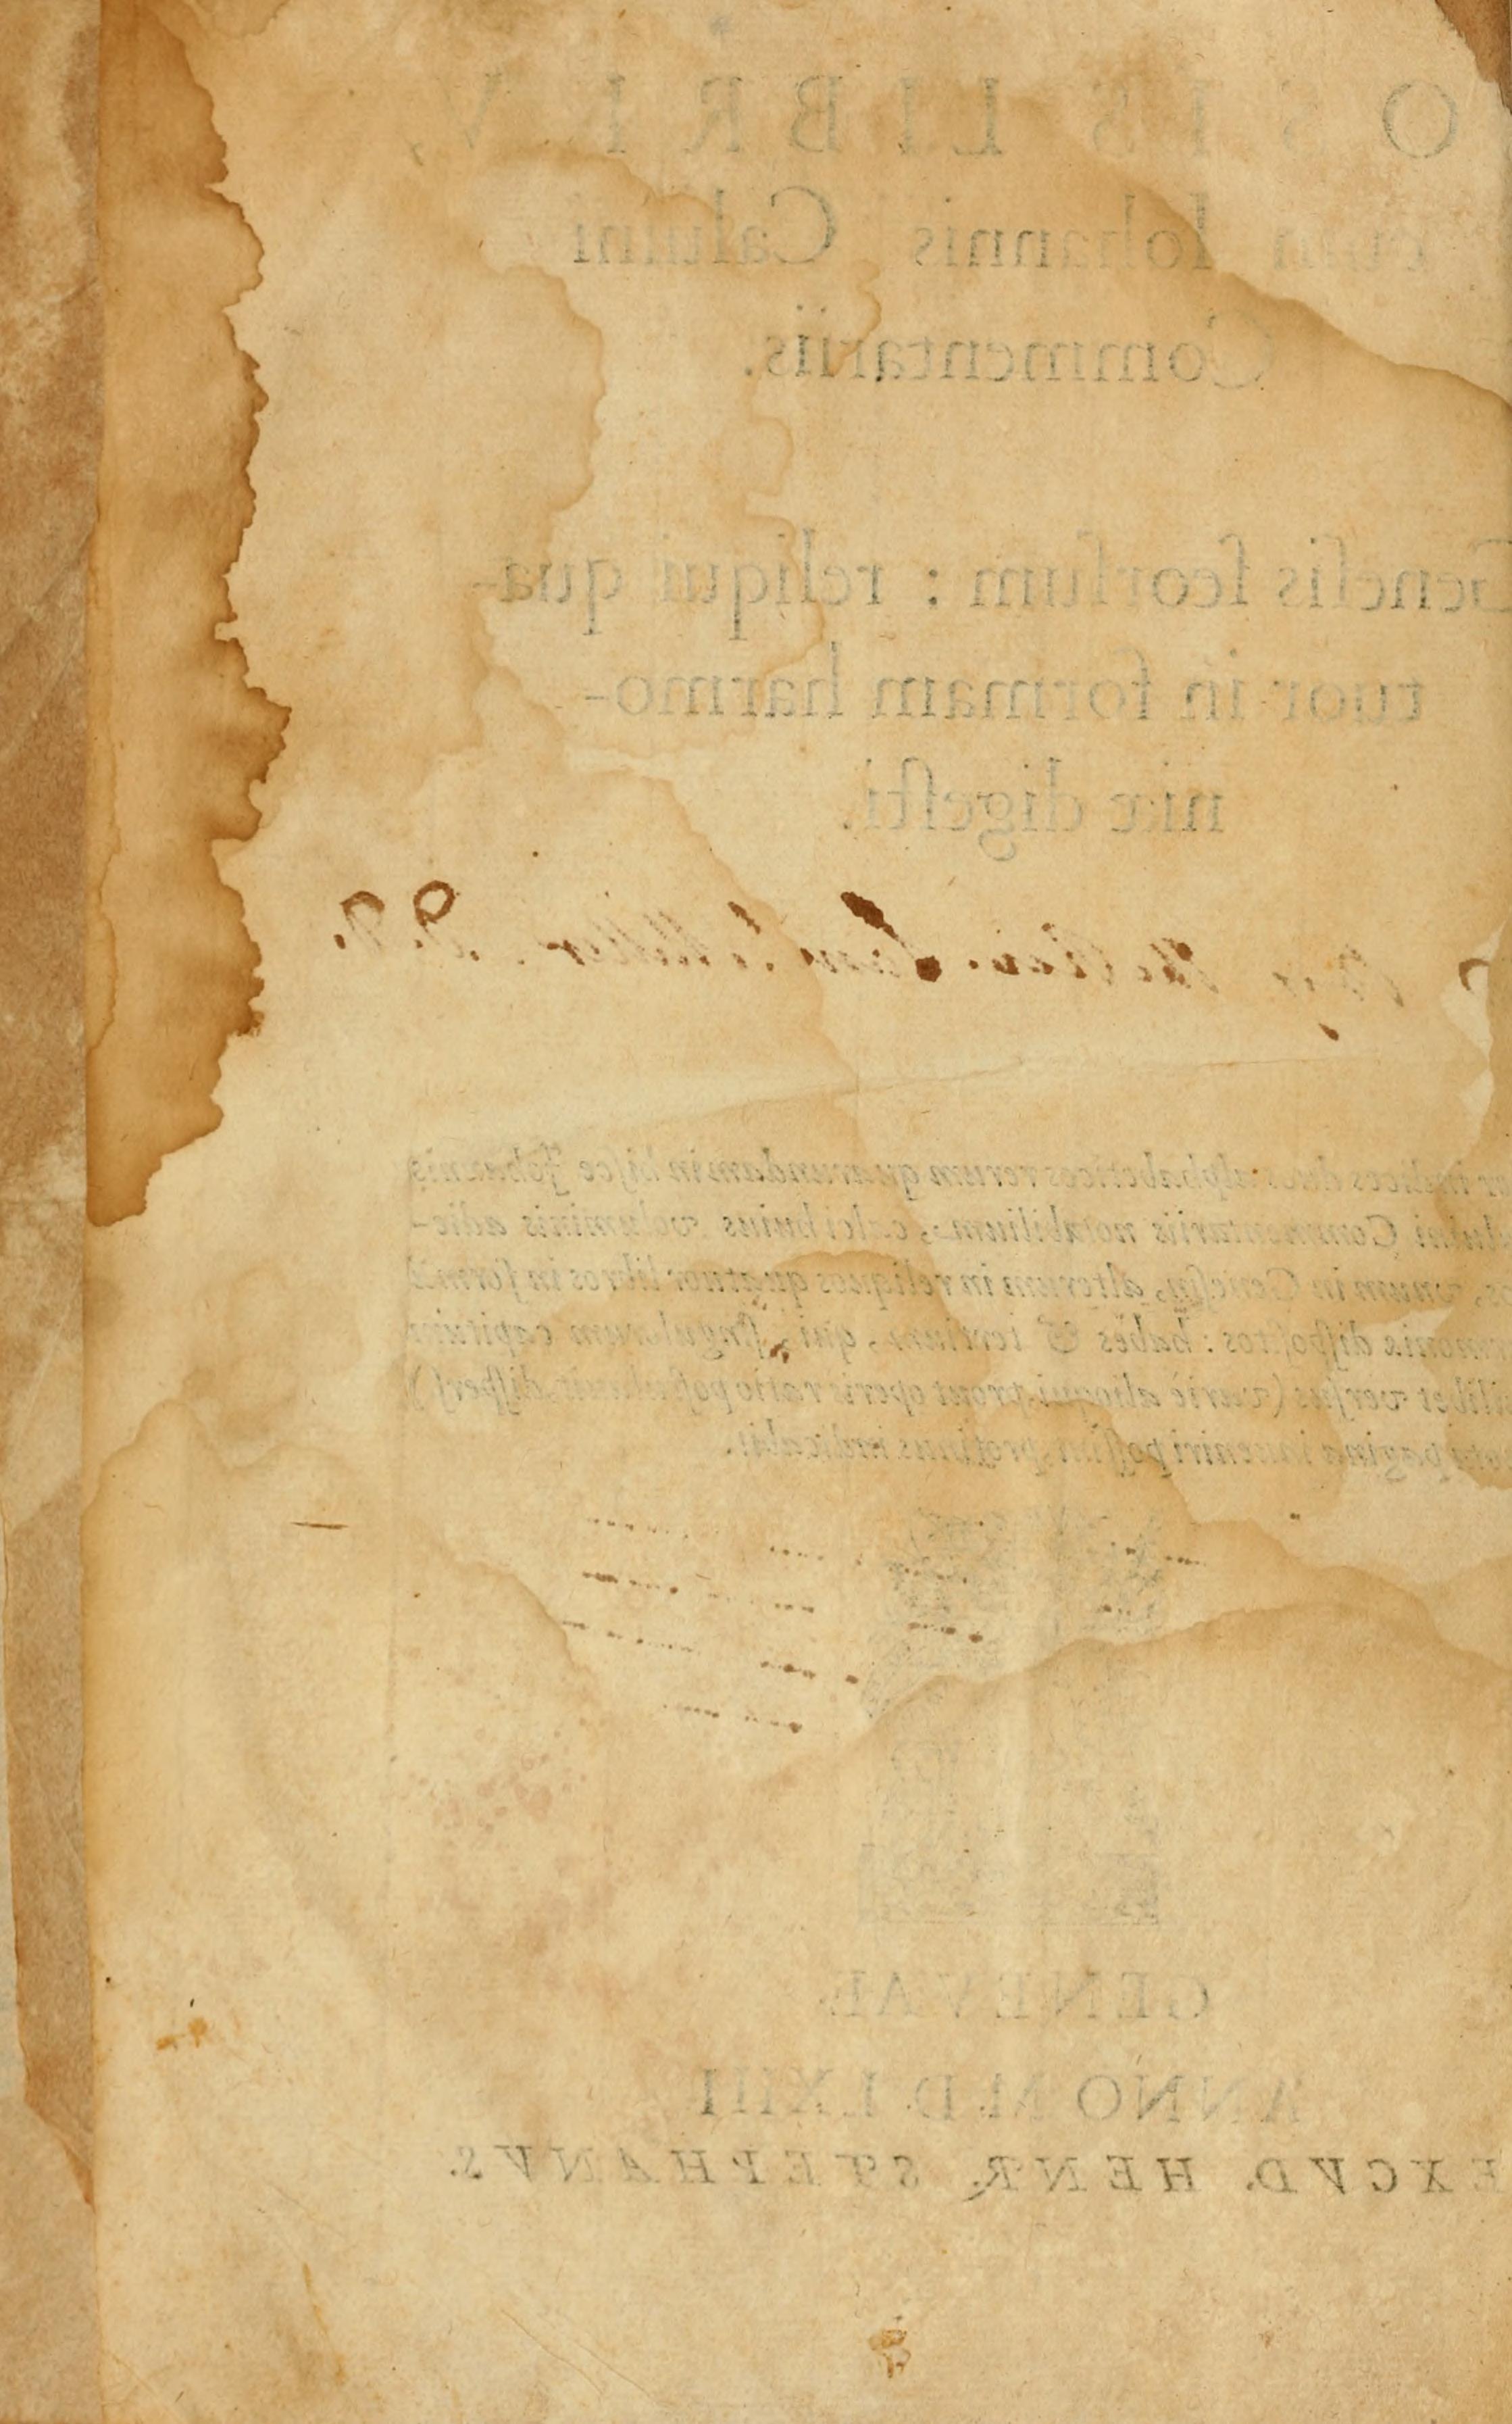 OSIS LIBRI V,
cum Iohannis Caluini
Commentariis.
Geneſis ſeorſum : reliqui qua-
tuor in formam harmo-
niæ digeſti.
By the Rev. Sam. Miller. D.D.
indices duos alphabeticos rerum quarundam in hiſce Johannis
Commentariis notabilium, calci huius voluminis adie-
vnum in Geneſin, alterum in reliquos quatuor libros in formã
diſpoſitos: habes & tertium, qui, ſingulorum capitum
verſus (variè alioqui prout operis ratio poſtulauit, diſperſi)
pagina inueniri poſſint, protinus indicabit.
GENEVAE
ANNO M.D.LXIII
EXCVD. HENR. STEPHANVS.